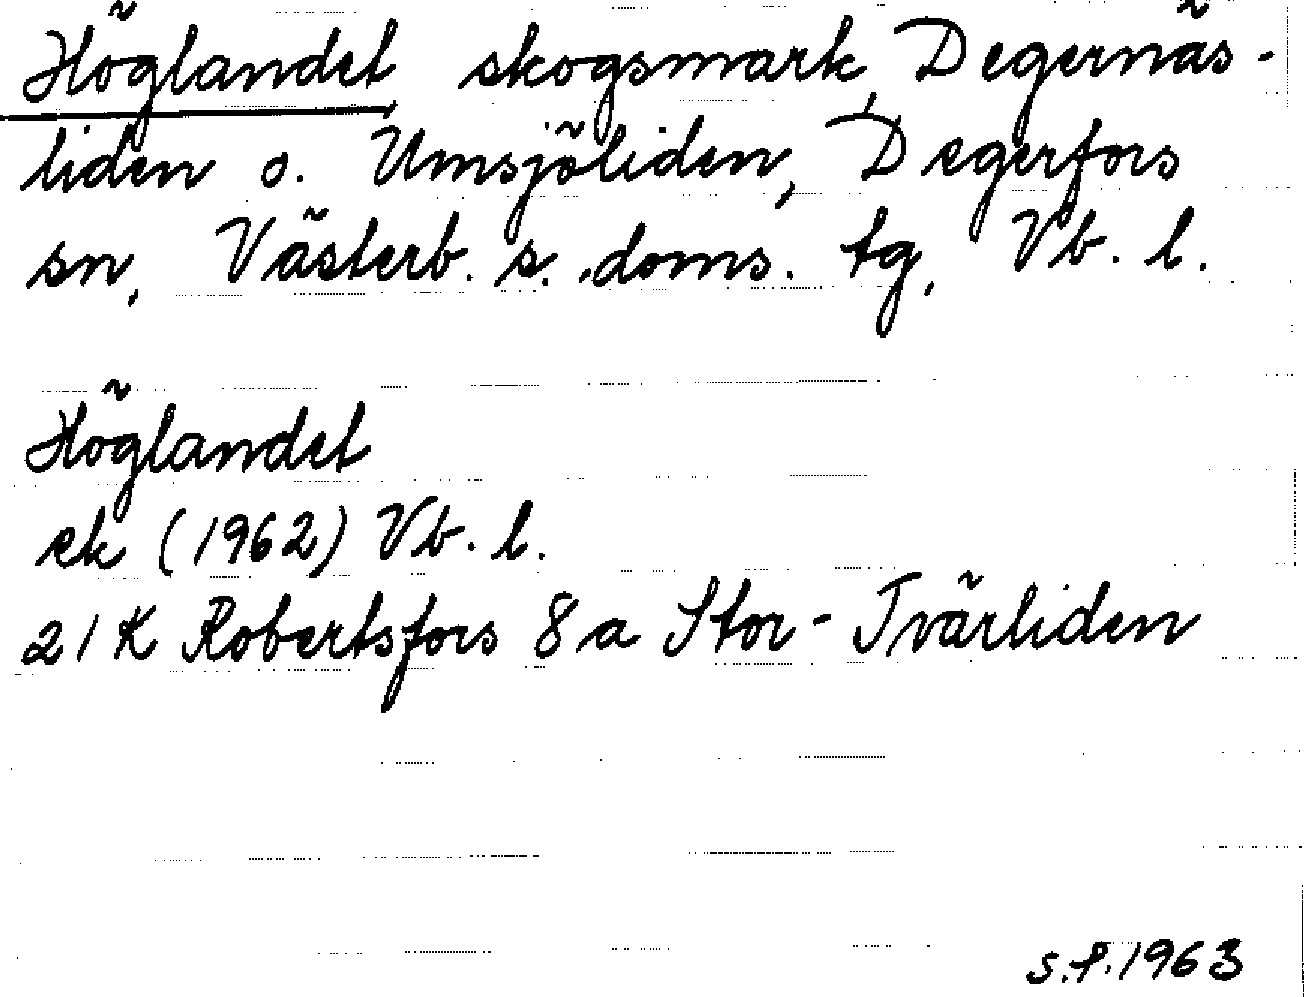 Höglandet skogsmark, Degernäs-
liden o. Umsjöliden, Degerfors
sn, Västerb. s. doms. tg, Vb. l.
Höglandet
ek (1962) Vb. l.
21K Robertsfors 8a Stor-Tvärliden
S.F. 1963